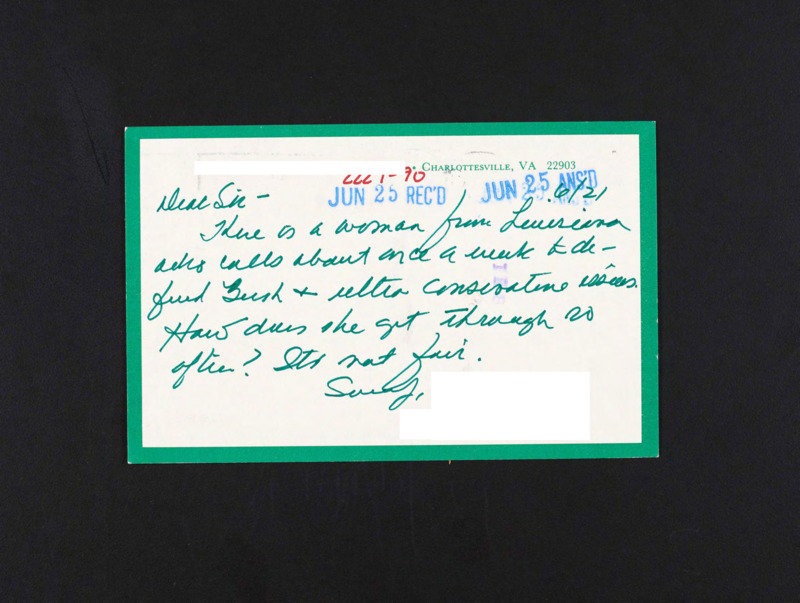 • Charlottesville, VA 22903
JUN 25 REC'D JUN 25 ANS'D
Dear Sir – 6/21
There is a woman from Louisiana
who calls about once a week to de-
fend Bush & ultra conservative issues.
How does she get through so
often? Its not fair.